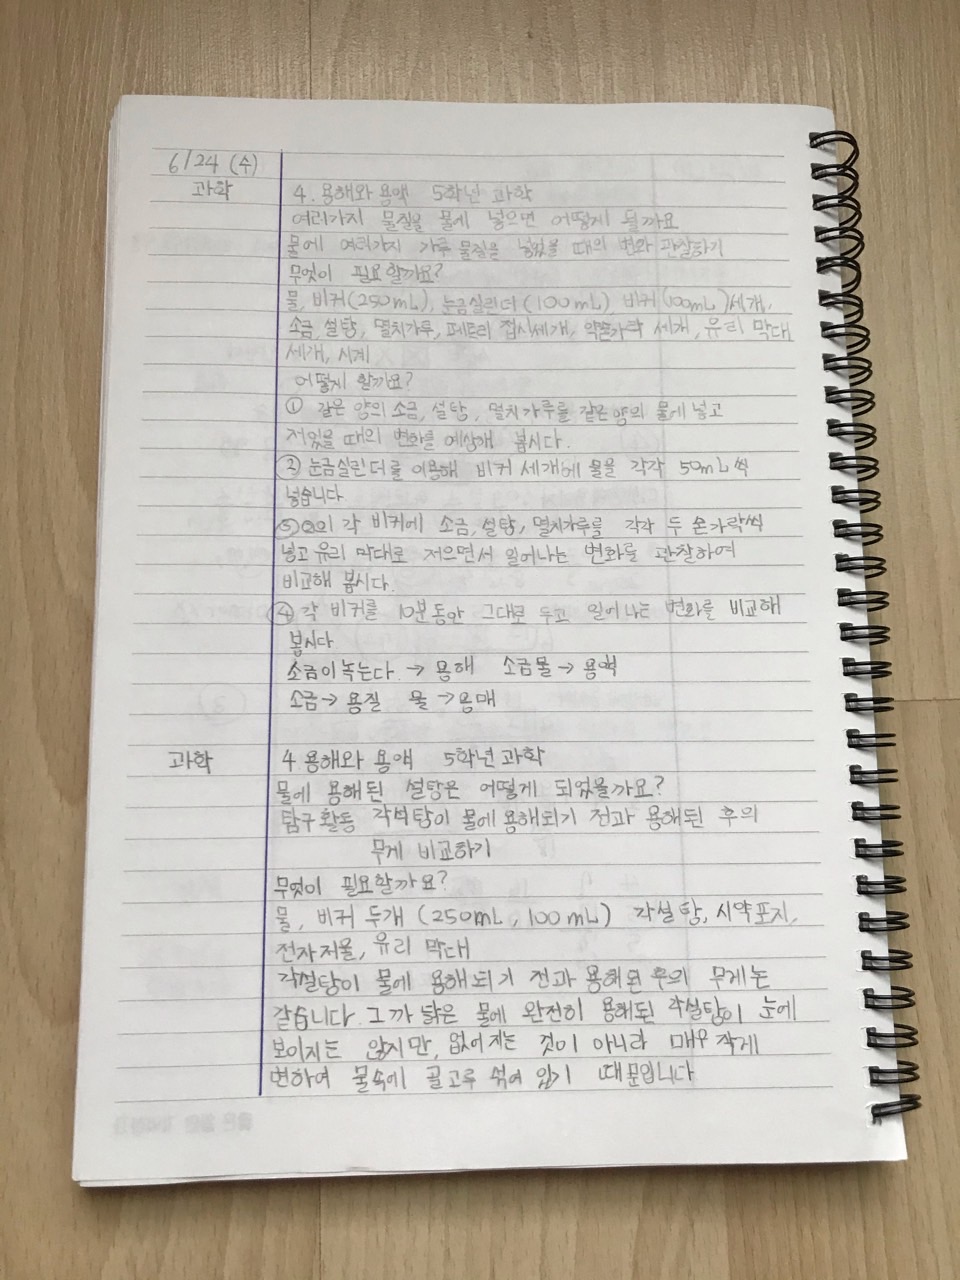 6/24 (수)
과학 4. 용해와 용액 5학년 과학
여러가지 물질을 물에 넣으면 어떻게 될까요
물에 여러가지 가루 물질을 넣었을 때의 변화 관찰하기
무엇이 필요할까요?
물, 비커(250mL), 눈금실린더(100mL) 비커(100mL)세개,
소금, 설탕, 멸치가루, 페트리 접시세개, 약숟가락 세개, 유리 막대
세개, 시계
어떻게 할까요?
① 같은 양의 소금, 설탕, 멸치가루를 같은 양의 물에 넣고
저었을 때의 변화를 예상해 봅시다.
② 눈금실린더를 이용해 비커 세개에 물을 각각 50mL씩
넣습니다
③ ②의 각 비커에 소금, 설탕, 멸치가루를 각각 두 숟가락씩
넣고 유리 막대로 저으면서 일어나는 변화를 관찰하여
비교해 봅시다.
④ 각 비커를 10분동안 그대로 두고 일어나는 변화를 비교해
봅시다
소금이 녹는다. → 용해 소금물 → 용액
소금 → 용질 물 → 용매
과학 4 용해와 용액 5학년 과학
물에 용해된 설탕은 어떻게 되었을까요?
탐구 활동 각석탕이 물에 용해되기 전과 용해된 후의
무게 비교하기
무엇이 필요할까요?
물, 비커 두개 (250mL, 100mL) 각설탕, 시약포지,
전자저울, 유리 막대
각설탕이 물에 용해되기 전과 용해된 후의 무게는
같습니다. 그 까닭은 물에 완전히 용해된 각설탕이 눈에
보이지는 않지만, 없어지는 것이 아니라 매우 작게
변하여 물속에 골고루 섞여 있기 때문입니다